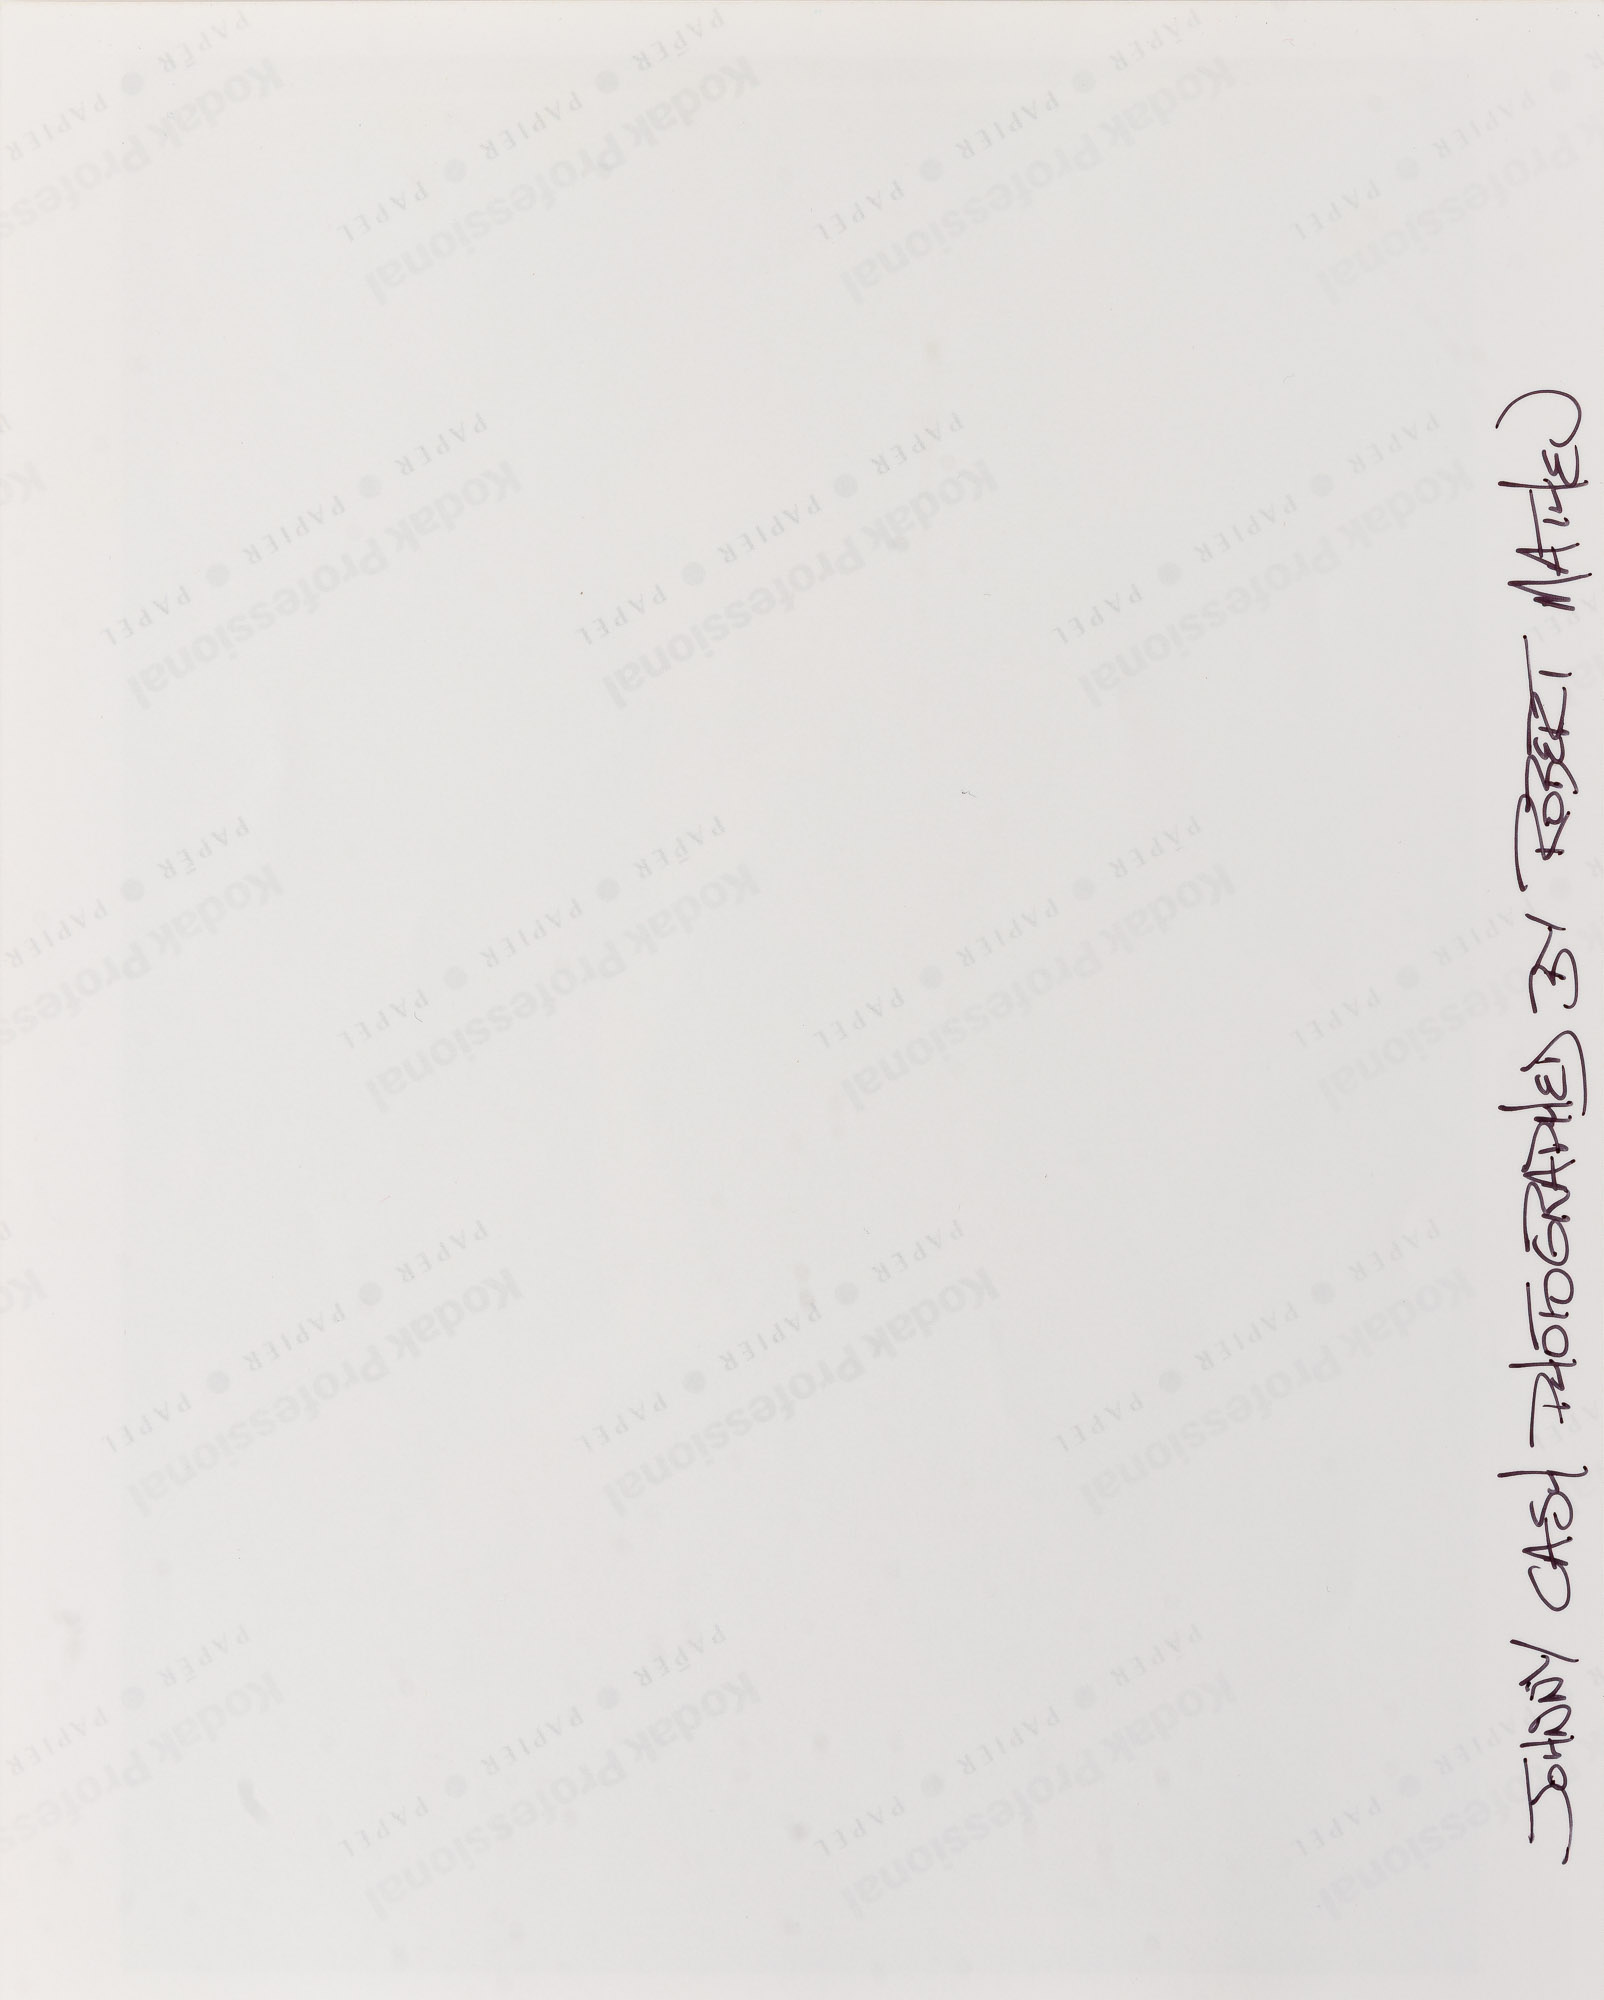 JOHNNY CASH PHOTOGRAPHED BY ROBERT MATHEU
Kodak Professional
PAPER ● PAPIER ● PAPEL
Kodak Professional
PAPER ● PAPIER ● PAPEL
Kodak Professional
PAPER ● PAPIER ● PAPEL
Kodak Professional
PAPER ● PAPIER ● PAPEL
Kodak Professional
PAPER ● PAPIER ● PAPEL
Kodak Professional
PAPER ● PAPIER ● PAPEL
Kodak Professional
PAPER ● PAPIER ● PAPEL
Kodak Professional
PAPER ● PAPIER ● PAPEL
Kodak Professional
PAPER ● PAPIER ● PAPEL
Kodak Professional
PAPER ● PAPIER ● PAPEL
Kodak Professional
PAPER ● PAPIER ● PAPEL
Kodak Professional
PAPER ● PAPIER ● PAPEL